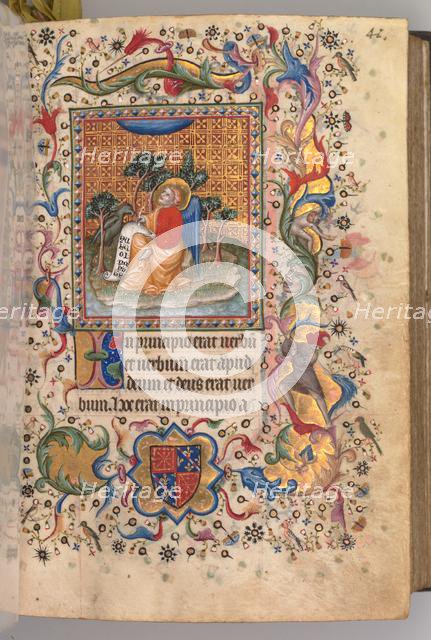 42.
In principio erat verbū
et verbum erat apud
deum et deus erat ver
bum. Hoc erat in principio a
Heritage Heritage
Heritage
Heritage Heritage
Heritage
Heritage Heritage